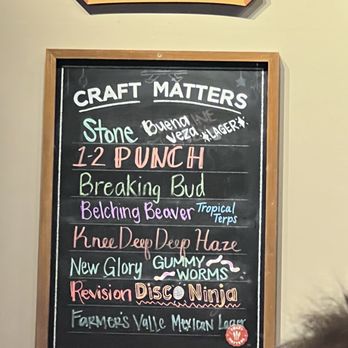 CRAFT MATTERS
Stone Buena Veza *LAGER*
1-2 PUNCH
Breaking Bud
Belching Beaver Tropical Terps
Knee Deep Deep Haze
New Glory GUMMY WORMS
Revision Disco Ninja
Farmer's Valle Mexican Lager